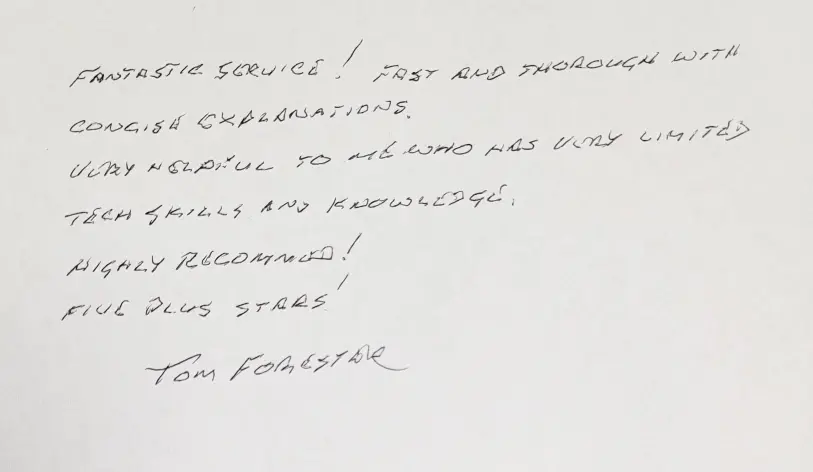 FANTASTIC SERVICE! FAST AND THOROUGH WITH
CONCISE EXPLANATIONS.
VERY HELPFUL TO ME WHO HAS VERY LIMITED
TECH SKILLS AND KNOWLEDGE.
HIGHLY RECOMMED!
FIVE PLUS STARS!
TOM FORESTER